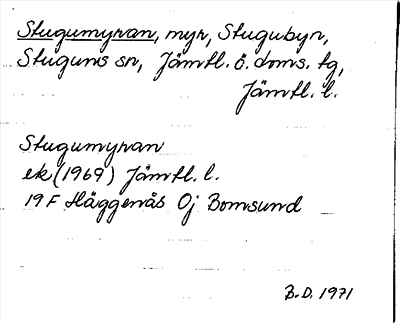 Stugumyran, myr, Stugubyn,
Stuguns sn, Jämtl. ö. doms. tg,
Jämtl. l.
Stugumyran
ek (1969) Jämtl. l.
19 F Häggenås Oj Bomsund
B.D. 1971